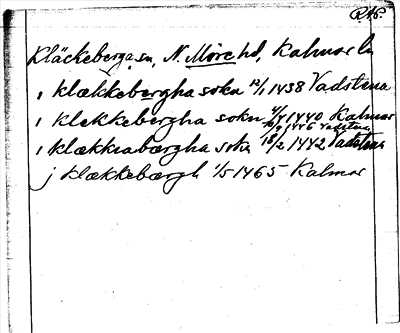 RAp.
Kläckeberga sn, N. Möre hd, Kalmar ln
i klækkebergha sokn 12/1 1438 Vadstena
i klekkebergha sokn 4/7 1440 Kalmar
1446 Vadstena
i klækkiabærgha sokn 18/2 1442 Vadstena
j klækkebærgh 1/5 1465 Kalmar